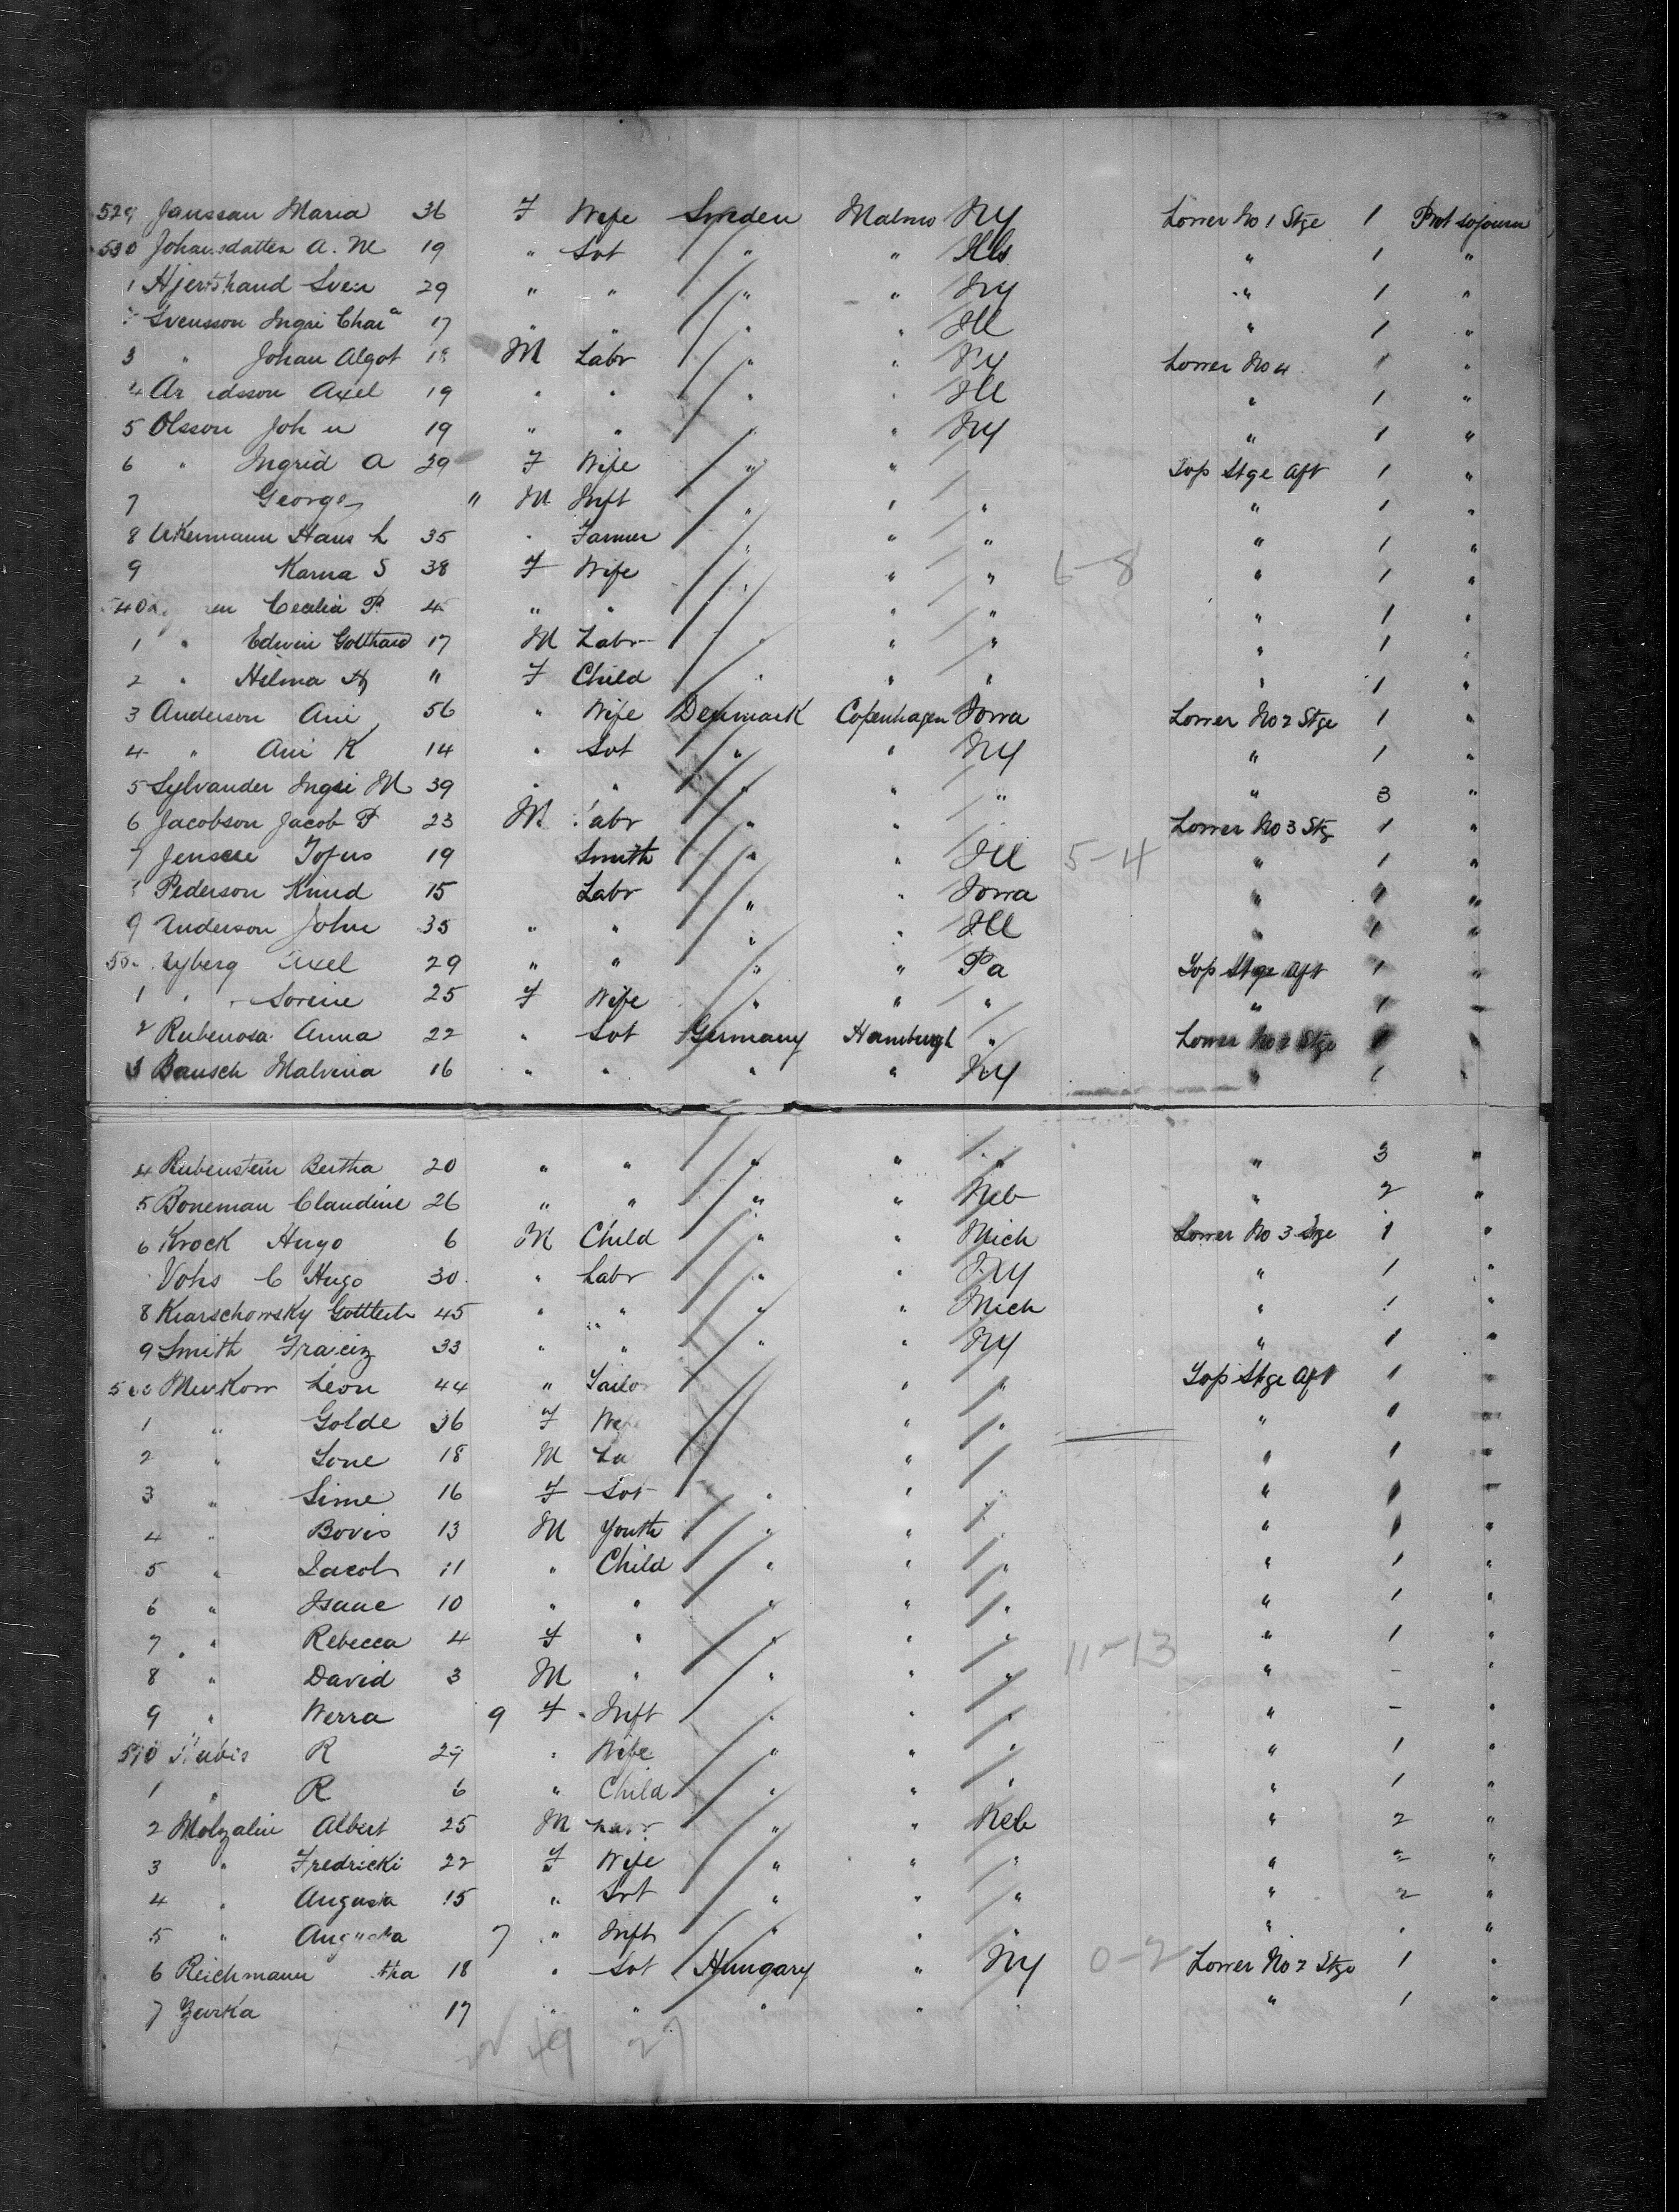 529 Janssan Maria 36 F Wife Sweden Malmo NY Lower No 1 Stge 1 Prot sojourn
530 A. M 19 " Svt " " Ills " 1 "
1 Sven 29 " " " " NY " 1 "
Svensson Ingri 17 " " " " Ill " 1 "
3 " Johan Algot 18 M Labr " " NY Lower No 4 1 "
4 Axel 19 " " " " Ill " 1 "
5 Olsson Joh n 19 " " " " NY " 1 "
6 " Ingrid A 39 F Wife " " Top Stge Aft 1 "
7 George " M Inft " " " " 1 "
8 Hans L 35 " Farmer " " " " 1 "
9 Karna S 38 F Wife " " " 6-8 " 1 "
540 Cecilia P. " " " " " 1 "
1 " Edwin Gotthard 17 M Labr " " " " 1 "
2 " Helma " F Child " " " " 1 "
3 Anderson Ani 56 " Wife Denmark Copenhagen Iowa Lower No 2 Stge 1 "
4 " Ani K 14 " Svt " " NY " 1 "
5 Sylvander Ingri M 39 " " " " " " 3 "
6 Jacobson Jacob P 23 M Labr " " Lower No 3 Stg 1 "
7 19 Smith " " Ill 5-4 " 1 "
Pederson Knud 15 Labr " " Iowa " 1 "
9 Anderson John 35 " " " " Ill " 1 "
Axel 29 " " " " Pa Top Stge Aft 1 "
1 " Sorine 25 F Wife " " " " 1 "
2 Rubenosa Anna 22 " Svt Germany Hamburgh " Lower No 2 Stge 1 "
3 Bausch Malvina 16 " " " " NY " 1 "
4 Rubenstein Bertha 20 " " " " " " 3 "
5 Boneman Claudine 26 " " " " Neb " 2 "
6 Krock Hugo 6 M Child " " Mich Lower No 3 Stge 1 "
Vohs C Hugo 30 " Labr " " NY " 1 "
8 Kiarschowsky Gottlieb 45 " " " " Mich " 1 "
9 Smith 33 " " " " NY " 1 "
Leon 44 " Tailor " " Top Stge Aft 1 "
1 " Golde 36 F " " " 1 "
2 " Sone 18 M La " " 1 "
3 " Sime 16 F Svt " " " " 1 "
4 " Boris 13 M Youth " " " " 1 "
5 " Jacob 11 " Child " " " " 1 "
6 " Isaac 10 " " " " " " 1 "
7 " Rebecca 4 F " " " " 11-13 " 1 "
8 " David 3 M " " " " " - "
9 " Werra 9 F Inft " " " " - "
570 R 29 " Wife " " " " 1 "
1 " R 6 " Child " " " " 1 "
2 Molzalin Albert 25 M Labr " " Neb " 2 "
3 " Fredricki 22 F Wife " " " " 2 "
4 " Augusta 15 " Svt " " " " 2 "
5 " Augusta 7 " Inft " " " " "
6 Reichmann tha 18 " Svt Hungary " NY 0-2 Lower No 2 Stge 1 "
7 Zurka 17 " " " " " " 1 "
49 27